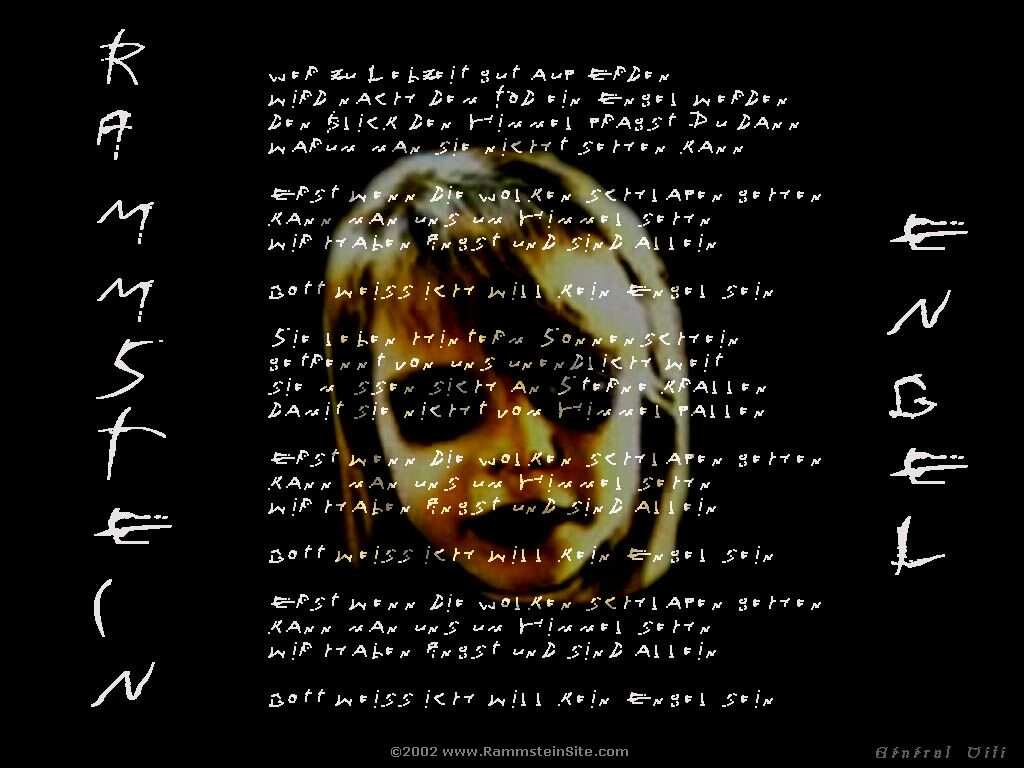 R
A
M
M
S
T
E
I
N
wer zu Lebzeit gut auf Erden
wird nach dem Tod ein Engel werden
den Blick gen Himmel fragst Du dann
warum man sie nicht sehen kann
Erst wenn die Wolken schlafen gehen
kann man uns um Himmel sehn
wir haben Angst und sind allein
Gott weiss ich will kein Engel sein
Sie leben hinterm Sonnenschein
getrennt von uns unendlich weit
sie m ssen sich an Sterne krallen
damit sie nicht vom Himmel fallen
Erst wenn die Wolken schlafen gehen
kann man uns um Himmel sehn
wir haben Angst und sind allein
Gott weiss ich will kein Engel sein
Erst wenn die Wolken schlafen gehen
kann man uns um Himmel sehn
wir haben Angst und sind allein
Gott weiss ich will kein Engel sein
E
N
G
E
L
©2002 www.RammsteinSite.com
Général Titi